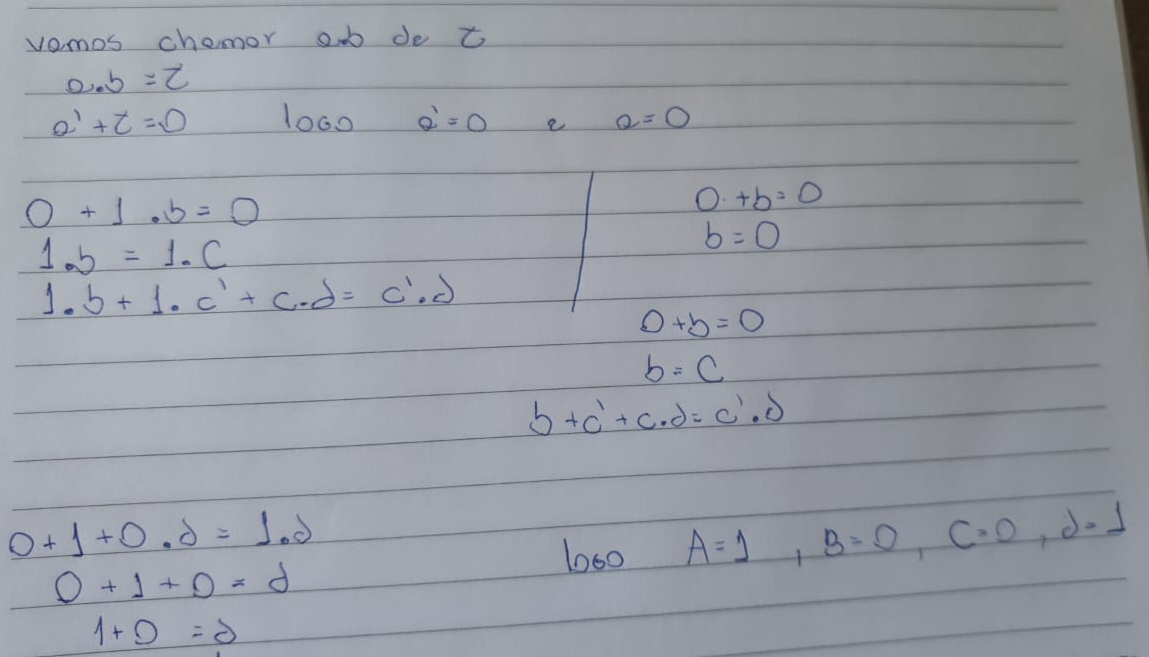 vamos chamar a.b de z
a.b = z
a' + z = 0 logo a' = 0 e a = 0
0 + 1 . b = 0
1.b = 1. C
1.b + 1. c' + c.d = c'.d
0. + b = 0
b = 0
0 + b = 0
b = C
b + c' + c.d = c'.d
0 + 1 + 0 . d = 1.d
0 + 1 + 0 = d
1 + 0 = d
logo A = 1 , B = 0 , C = 0 , d = 1